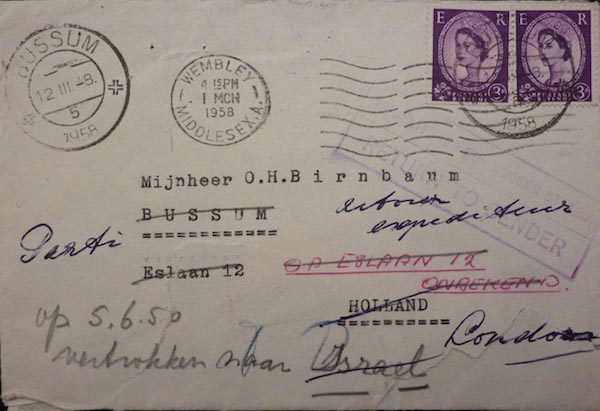 BUSSUM
12 III. 48.
5
1958
WEMBLEY
4 15 PM
1 MCH
1958
MIDDLESEX.A.
E R
3D
E R
3D
1958
RETURN TO SENDER
Mijnheer O.H.Birnbaum
BUSSUM
Parti
retour
expediteur
Eslaan 12
OP ESLAAN 12
ONBEKEND.
HOLLAND
London
op 5.6.50
vertrokken naar Israel